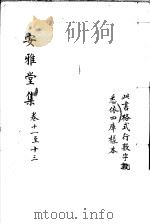 此書格式行數字數
悉依四庫樣本
安雅堂集
卷十一至十三